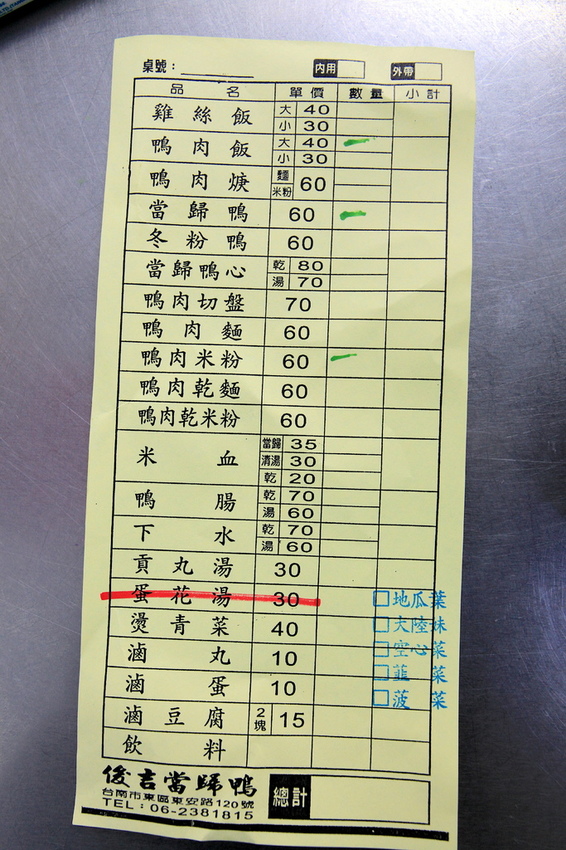 桌號： 內用 外帶
品名 單價 數量 小計
雞絲飯 大 40
小 30
鴨肉飯 大 40
小 30
鴨肉焿 麵 60
米粉
當歸鴨 60
冬粉鴨 60
當歸鴨心 乾 80
湯 70
鴨肉切盤 70
鴨肉麵 60
鴨肉米粉 60
鴨肉乾麵 60
鴨肉乾米粉 60
米血 當歸 35
清湯 30
乾 20
鴨腸 乾 70
湯 60
下水 乾 70
湯 60
貢丸湯 30
蛋花湯 30 地瓜葉
燙青菜 40 大陸妹
空心菜
滷丸 10 韮菜
滷蛋 10 菠菜
滷豆腐 2塊 15
飲料
俊吉當歸鴨 總計
台南市東區東安路120號
TEL：06-2381815